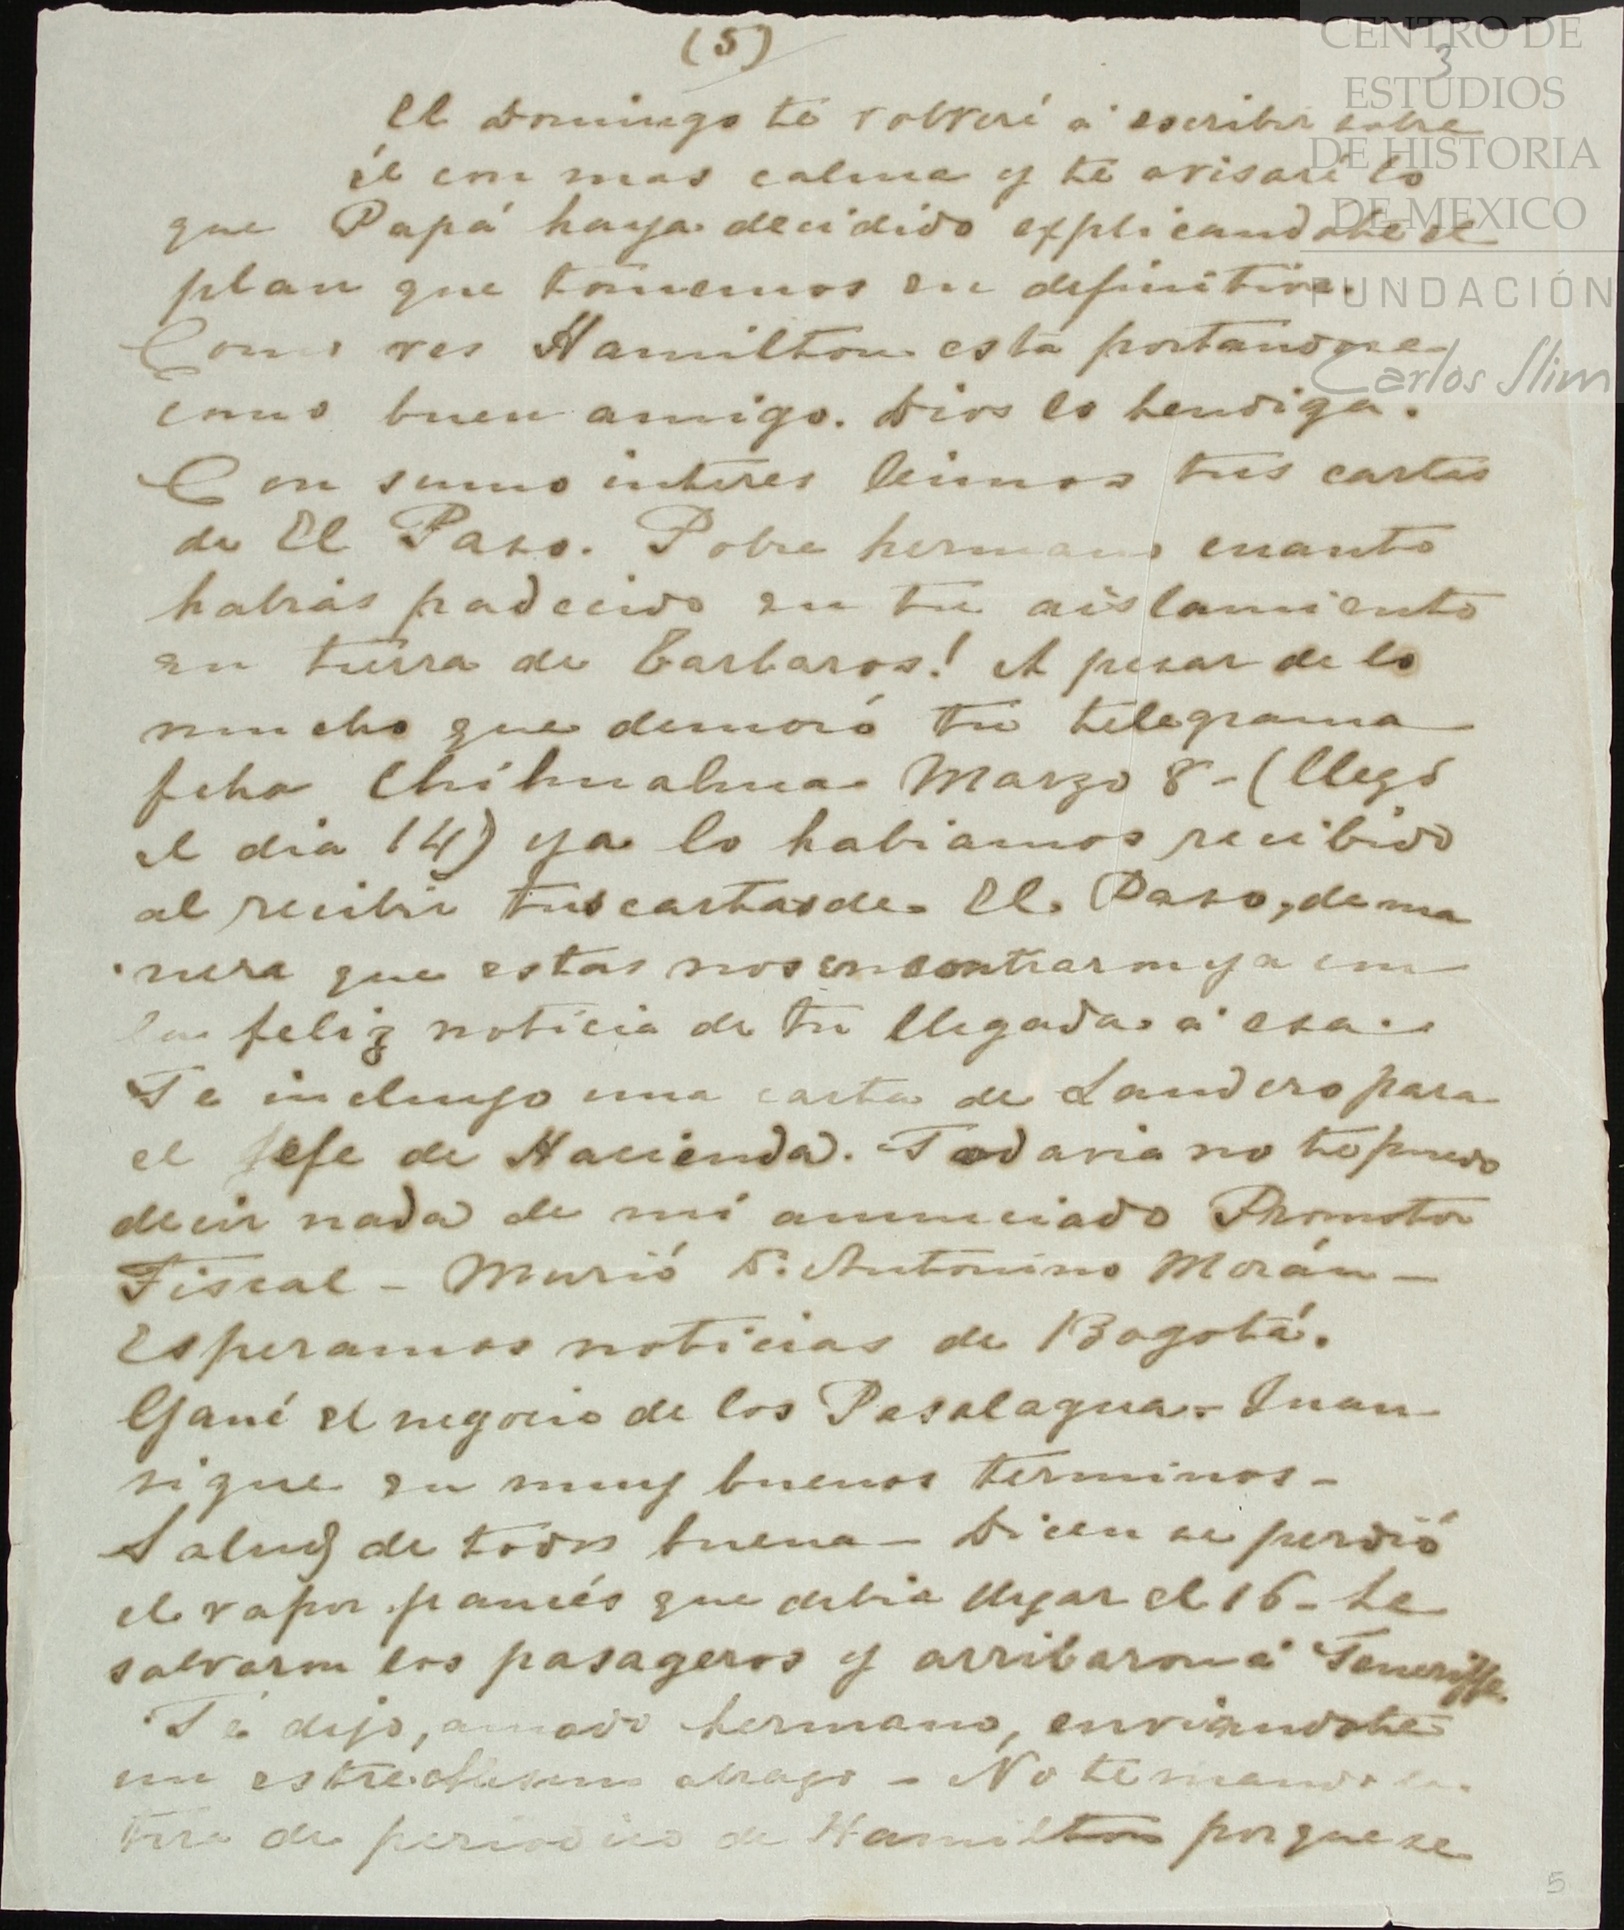 (5)
3
CENTRO DE
ESTUDIOS
DE HISTORIA
DE MEXICO
FUNDACIÓN
Carlos Slim
El Domingo te volveré á escribir sobre
él con mas calma y te avisaré lo
que Papá haya decidido explicandote el
plan que tomemos en definitiva.
Como ves Hamilton está portandose
como buen amigo. Dios lo bendiga.
Con sumo interes leimos tus cartas
de El Paso. Pobre hermano cuanto
habrás padecido en tu aislamiento
en tierra de Barbaros! A pesar de lo
mucho que demoró tu telegrama
fcha Chihuahua Marzo 8 - (llegó
el dia 14) ya lo habiamos recibido
al recibir tus cartas de El Paso, de ma
nera que estas nos encontraron ya con
la feliz noticia de tu llegada á esa.
Te incluyo una carta de Landero para
el Jefe de Hacienda. Todavia no te puedo
decir nada de mi anunciado Promotor
Fiscal - Murió D. Antonino Morán -
Esperamos noticias de Bogotá.
Gané el negocio de los Pasalagua - Juan
sigue en muy buenos terminos -
Salud de todos buena - Dicen se perdió
el vapor francés que debia llegar el 16 - Se
salvaron los pasageros y arribaron á Teneriffe.
Te dejo, amado hermano, enviandote
un estrechisimo abrazo - No te mando la
tira de periodico de Hamilton porque se
5